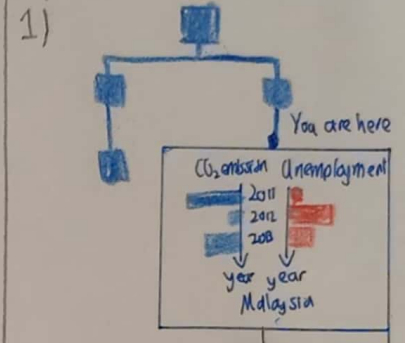 1)
You are here
CO₂ emission Unemployment
2011
2012
2013
year year
Malaysia